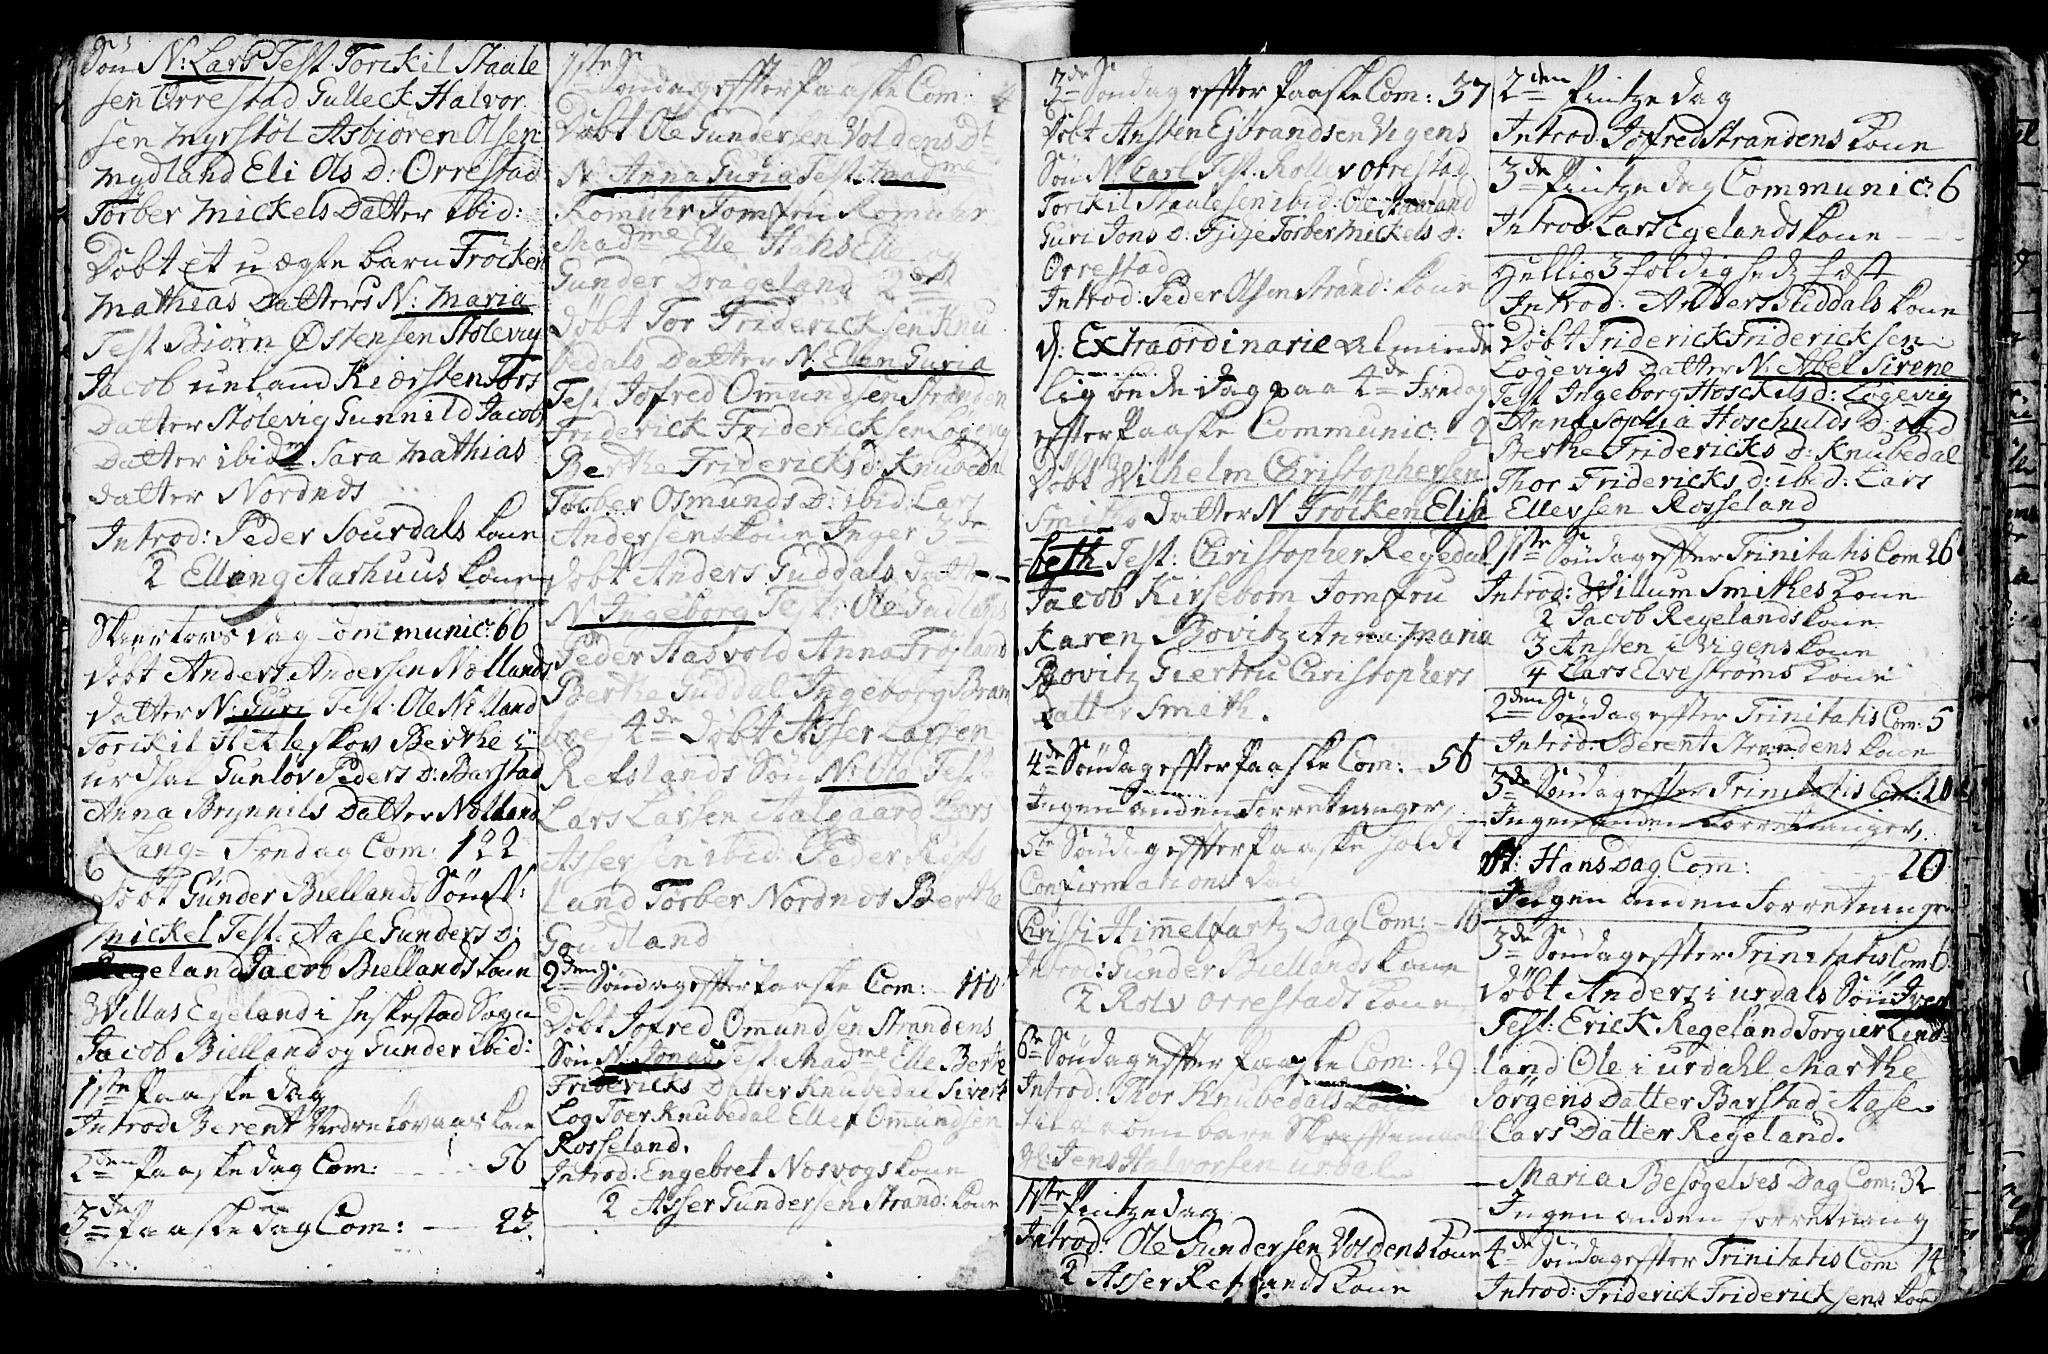 Søn N: Lars Test. Torkil Staale
sen Orrestad Gulleck Halvor
sen Myrstøl Asbiøren Olsen
Mydland Eli Ols D: Orrestad
Tørber Mickels Datter ibid:
Døbt et u ægte barn Frøcken
Mathias Datters N: Maria
Test Biørn Østensen Stølevig
Jacob Kiersten Tørs
Datter Stølevig Gunnild Jacobs
Datter ibidm Sara Mathias
datter Nordnds
Introd: Peder Sourdals kone
2 Elleng Aarhuus kone
Skiertorsdag Communic: 66
Døbt Anders Andersen Nølland
Datter N: Guri Test: Ole Nølland
Torkil Hetleskov Berthe i
urdhal Gunløv Peders D: Barstad
Anna Brynnils Datter Nølland
Lang= Fredag Com: 122
Døbt Gunder Biellands Søn N:
Mickel Test: Aase Gunders D:
Regeland Jacob Biellands kone
Willas Egeland i Heskestad Sogn
Jacob Bielland og Gunder ibid:
1ste Paaske dag
Introd Berent kone
2den Paaske dag Com: 56
3de Paaske dag Com: 23.
1ste Søndag effter Paaske Com:
Døbt Ole Gundersen Voldens Dt
N: Anna Guria Test: Madme
Romuhr Jomfru Romuhr
Madme Elle
Gunder Drageland 2det
døbt Tor Fridericksen Knu
bedals Datter N: Ellen Guria
Test Jofred Omundsen Stranden
Friderick Fridericksen Løgevig
Berthe Fridericks d: Knubedal
Tørber Osmunds D: ibid: Lars
Andersens kone Inger 3de
døbt Anders Guddals datter
N Ingeborg Test: Ole
Peder Aasvold Anna
Berthe Guddal Ingeborg Bram
boe, 4de døbt Asser Larsen
Refslands Søn N: Ole Test:
Lars Larsen Aalgaard Lars
Assersen ibid: Peder Refs
land Tørber Nordnds Berthe
Goudland
2den Søndag effter Paaske Com: 110
Døbt Jofred Omundsen Strandens
Søn N: Jonas Test: Madme Elle Berte
Fridericks Datter Knubedal Sivert
Log Toer Knubedal Ellef Omundsen
Rosseland.
Introd: Engebret Nosvogs kone
2 Asser Gundersen Strand: kone
3de Søndag effter Paaske Com: 37
Døbt Ansten Ejbrandsen Vigens
Søn N: Carl Test. Rollev Orrestad
Torkil Staalesen ibid: Ole
Guri Jons D: Tørber Mickels D:
Orrestad
Introd: Peder Olsen Strand: kone
d: Extraordinarie alminde
lig bededag paa 4de fredag
effter Paaske Communic: 2
Døbt Wilhelm Christophersen
Smiths Datter N Frøcken Elisa
beth Test: Christopher Regedal
Jacob Kirsebom Jomfru
Karen Bovitz Anna Maria
Bovitz Giertru Christophers
Datter Smith.
4de Søndag effter Paaske Com: 56
Ingen anden Forretninger,
5te Søndag effter Paaske holdt
Confirmations dag
Christi Himmelfartz Dag Com: 16
Introd: Gunder Biellands kone
2 Rolv Orrestads kone
6te Søndag effter Paaske Com: 29
Introd: Thor Knubedals kone
til aabenbare Skrifftemaal
Jens Halvorsen urdal
1ste Pintzedag
Introd: Ole Gundersen Voldens kone
2 Asser Refslands kone
2den Pintzedag
Introd Jofred Strandens kone
3de Pintzedag Communic: 6
Introd: Lars Egelands kone
Hellig 3foldigheds fest
Introd: Anders Guddals kone
Døbt Friderick Fridericksen
Løgevigs Datter N: Abel Sirene
Test Ingeborg D: Løgevig
Anna Sophia D: ibid
Berthe Fridericks D: Knubedal
Thor Fridericks d: ibid: Lars
Ellevsen Rosseland
1ste Søndag effter Trinitatis Com 26
Introd: Willum Smithes kone
2 Jacob Regelands kone
3 Ansten i Vigens kone
4 Lars Elvestrøms kone
2den Søndag effter Trinitatis Com: 5
Introd: Berent Strandens kone
3de Søndag effter Trinitatis Com: 20
Ingen anden Forretninger,
St: Hans Dag Com: 20
Ingen anden Forretninger
3de Søndag effter Trinitatis Com 6.
Døbt Anders i urdals Søn Iver
Test: Erick Regeland Torgier Lind
land Ole i urdahl Marthe
Jørgens Datter Barstad Aase
Lars Datter Regeland.
Maria Besøgelses Dag Com: 32
Ingen anden forretning
4de Søndag effter Trinitatis Com 14
Introd: Friderick Fridericksens kone